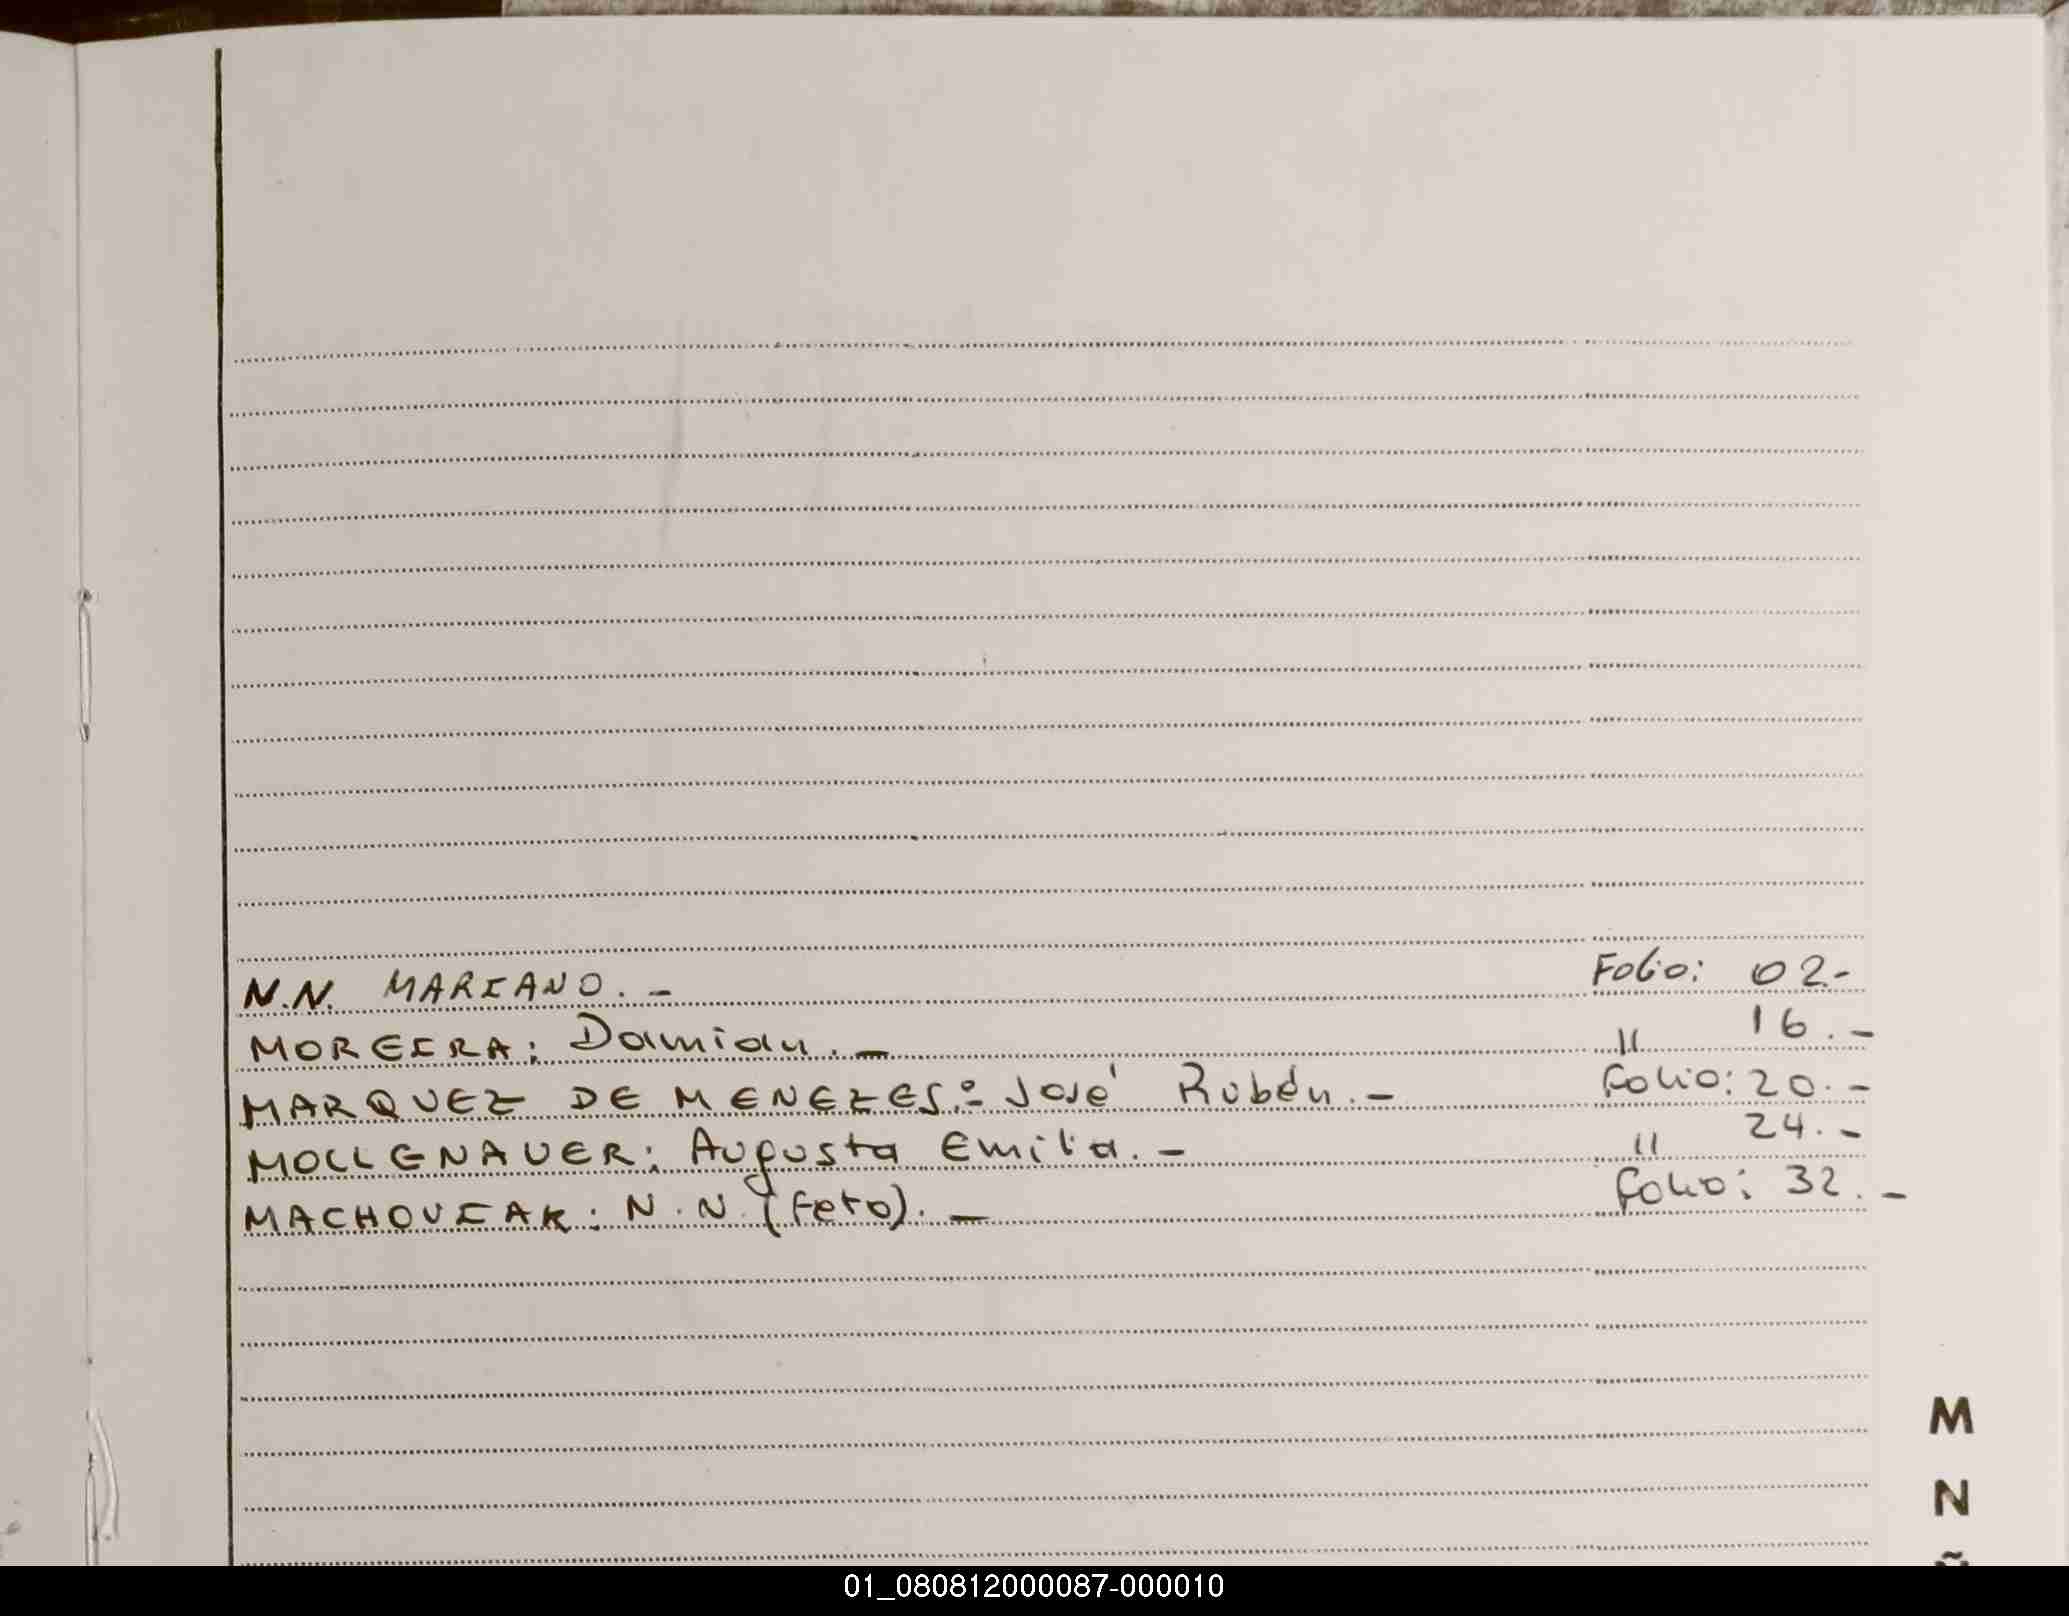 N.N. MARIANO. - Folio: 02.-
MOREIRA: Damian. - " 16. -
MARQUEZ DE MENEZES:- José Rubén. - Folio: 20. -
MOLLENAUER: Augusta Emilia. - " 24. -
MACHOVIAK: N.N. (Feto). - Folio: 32. -
M
N
01_080812000087-000010